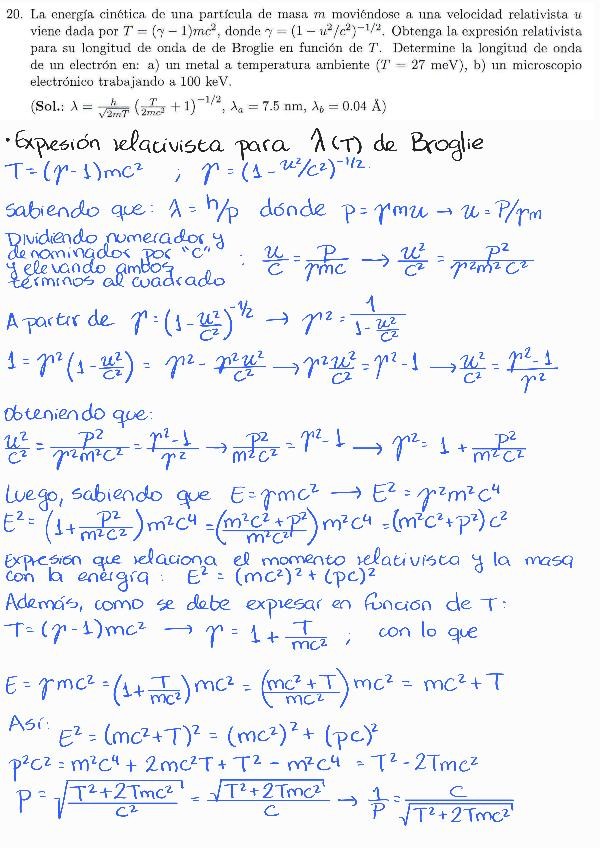 20. La energía cinética de una partícula de masa m moviéndose a una velocidad relativista u
viene dada por T = (γ − 1)mc², donde γ = (1 − u²/c²)^{−1/2}. Obtenga la expresión relativista
para su longitud de onda de de Broglie en función de T. Determine la longitud de onda
de un electrón en: a) un metal a temperatura ambiente (T = 27 meV), b) un microscopio
electrónico trabajando a 100 keV.
(Sol.: λ = h/√(2mT) (T/(2mc²) + 1)^{−1/2}, λ_a = 7.5 nm, λ_b = 0.04 Å)
· Expresión relativista para λ(T) de Broglie
T = (γ - 1)mc² ; γ = (1 - u²/c²)^{-1/2}.
Sabiendo que: λ = h/p dónde p = γmu → u = P/γm
Dividiendo numerador y
denominador por "c"
y elevando ambos
términos al cuadrado : u/c = P/(γmc) → u²/c² = P²/(γ²m²c²)
A partir de γ = (1 - u²/c²)^{-1/2} → γ² = 1/(1 - u²/c²)
1 = γ²(1 - u²/c²) = γ² - γ²u²/c² → γ²u²/c² = γ² - 1 → u²/c² = (γ² - 1)/γ²
Obteniendo que:
u²/c² = P²/(γ²m²c²) = (γ² - 1)/γ² → P²/(m²c²) = γ² - 1 → γ² = 1 + P²/(m²c²)
Luego, sabiendo que E = γmc² → E² = γ²m²c⁴
E² = (1 + P²/(m²c²)) m²c⁴ = ((m²c² + P²)/(m²c²)) m²c⁴ = (m²c² + p²)c²
Expresión que relaciona el momento relativista y la masa
con la energía : E² = (mc²)² + (pc)²
Además, como se debe expresar en función de T:
T = (γ - 1)mc² → γ = 1 + T/mc² ; con lo que
E = γmc² = (1 + T/mc²) mc² = ((mc² + T)/mc²) mc² = mc² + T
Así: E² = (mc² + T)² = (mc²)² + (pc)²
p²c² = m²c⁴ + 2mc²T + T² - m²c⁴ = T² - 2Tmc²
P = √((T² + 2Tmc²)/c²) = √(T² + 2Tmc²)/c → 1/P = c/√(T² + 2Tmc²)